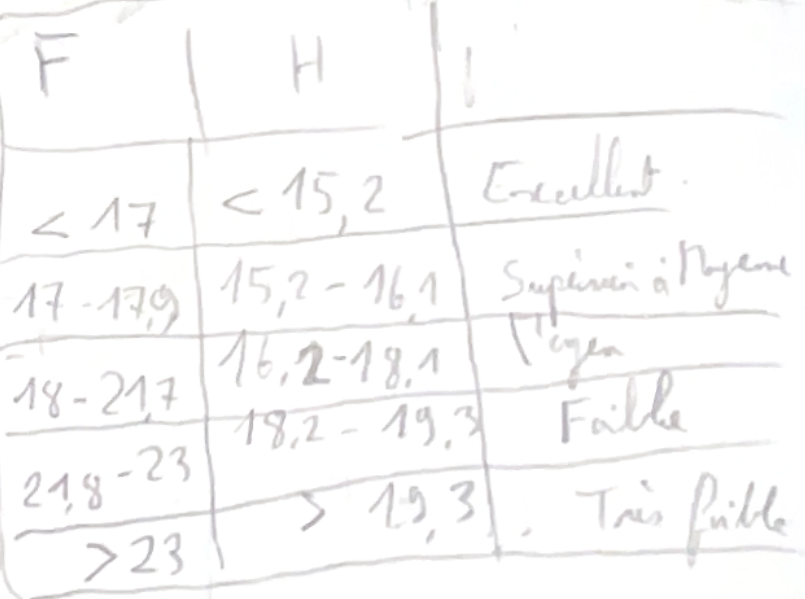 F H I
< 17 < 15,2 Excellent.
17-17,9 15,2-16,1 Supérieur à Moyenne
18-21,7 16,2-18,1 Moyen
21,8-23 18,2-19,3 Faible
>23 > 19,3 Très faible